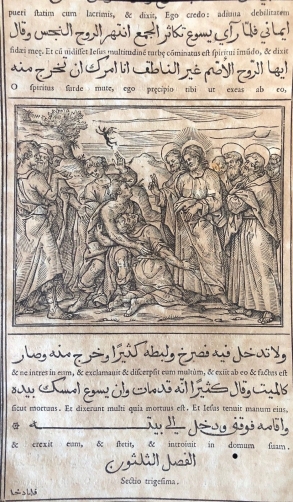 pueri statim cum lacrimis, & dixit, Ego credo: adiuua debilitatem
ايماني فلمّا رأي يسوع تكاثر الجمع انتهر الروح النجس وقال
fidei meę. Et cú vidisset Iesus multitudinẽ turbę cõminatus est spiritui imũdo, & dixit
ايها الروح الأصّم غير الناطق انا امرك ان تخرج منه
O spiritus surde mute, ego praecipio tibi ut exeas ab eo,
ولا تدخل فيه فصرخ ولبطه كثيرًا وخرج منه وصار
& ne intres in eum, & exclamauit & discerpsit eum multùm, & exiit ab eo & factus est
كالميت وقال كثيرًا انّه قد مات وان يسوع امسك بيده
sicut mortuus. Et dixerunt multi quia mortuus est. Et Iesus tenuit manum eius,
وأقامه فوقف ودخل الي بيته
& erexit eum, & stetit, & introiuit in domum suam.
الفصل الثلثون
Sectio trigesima.